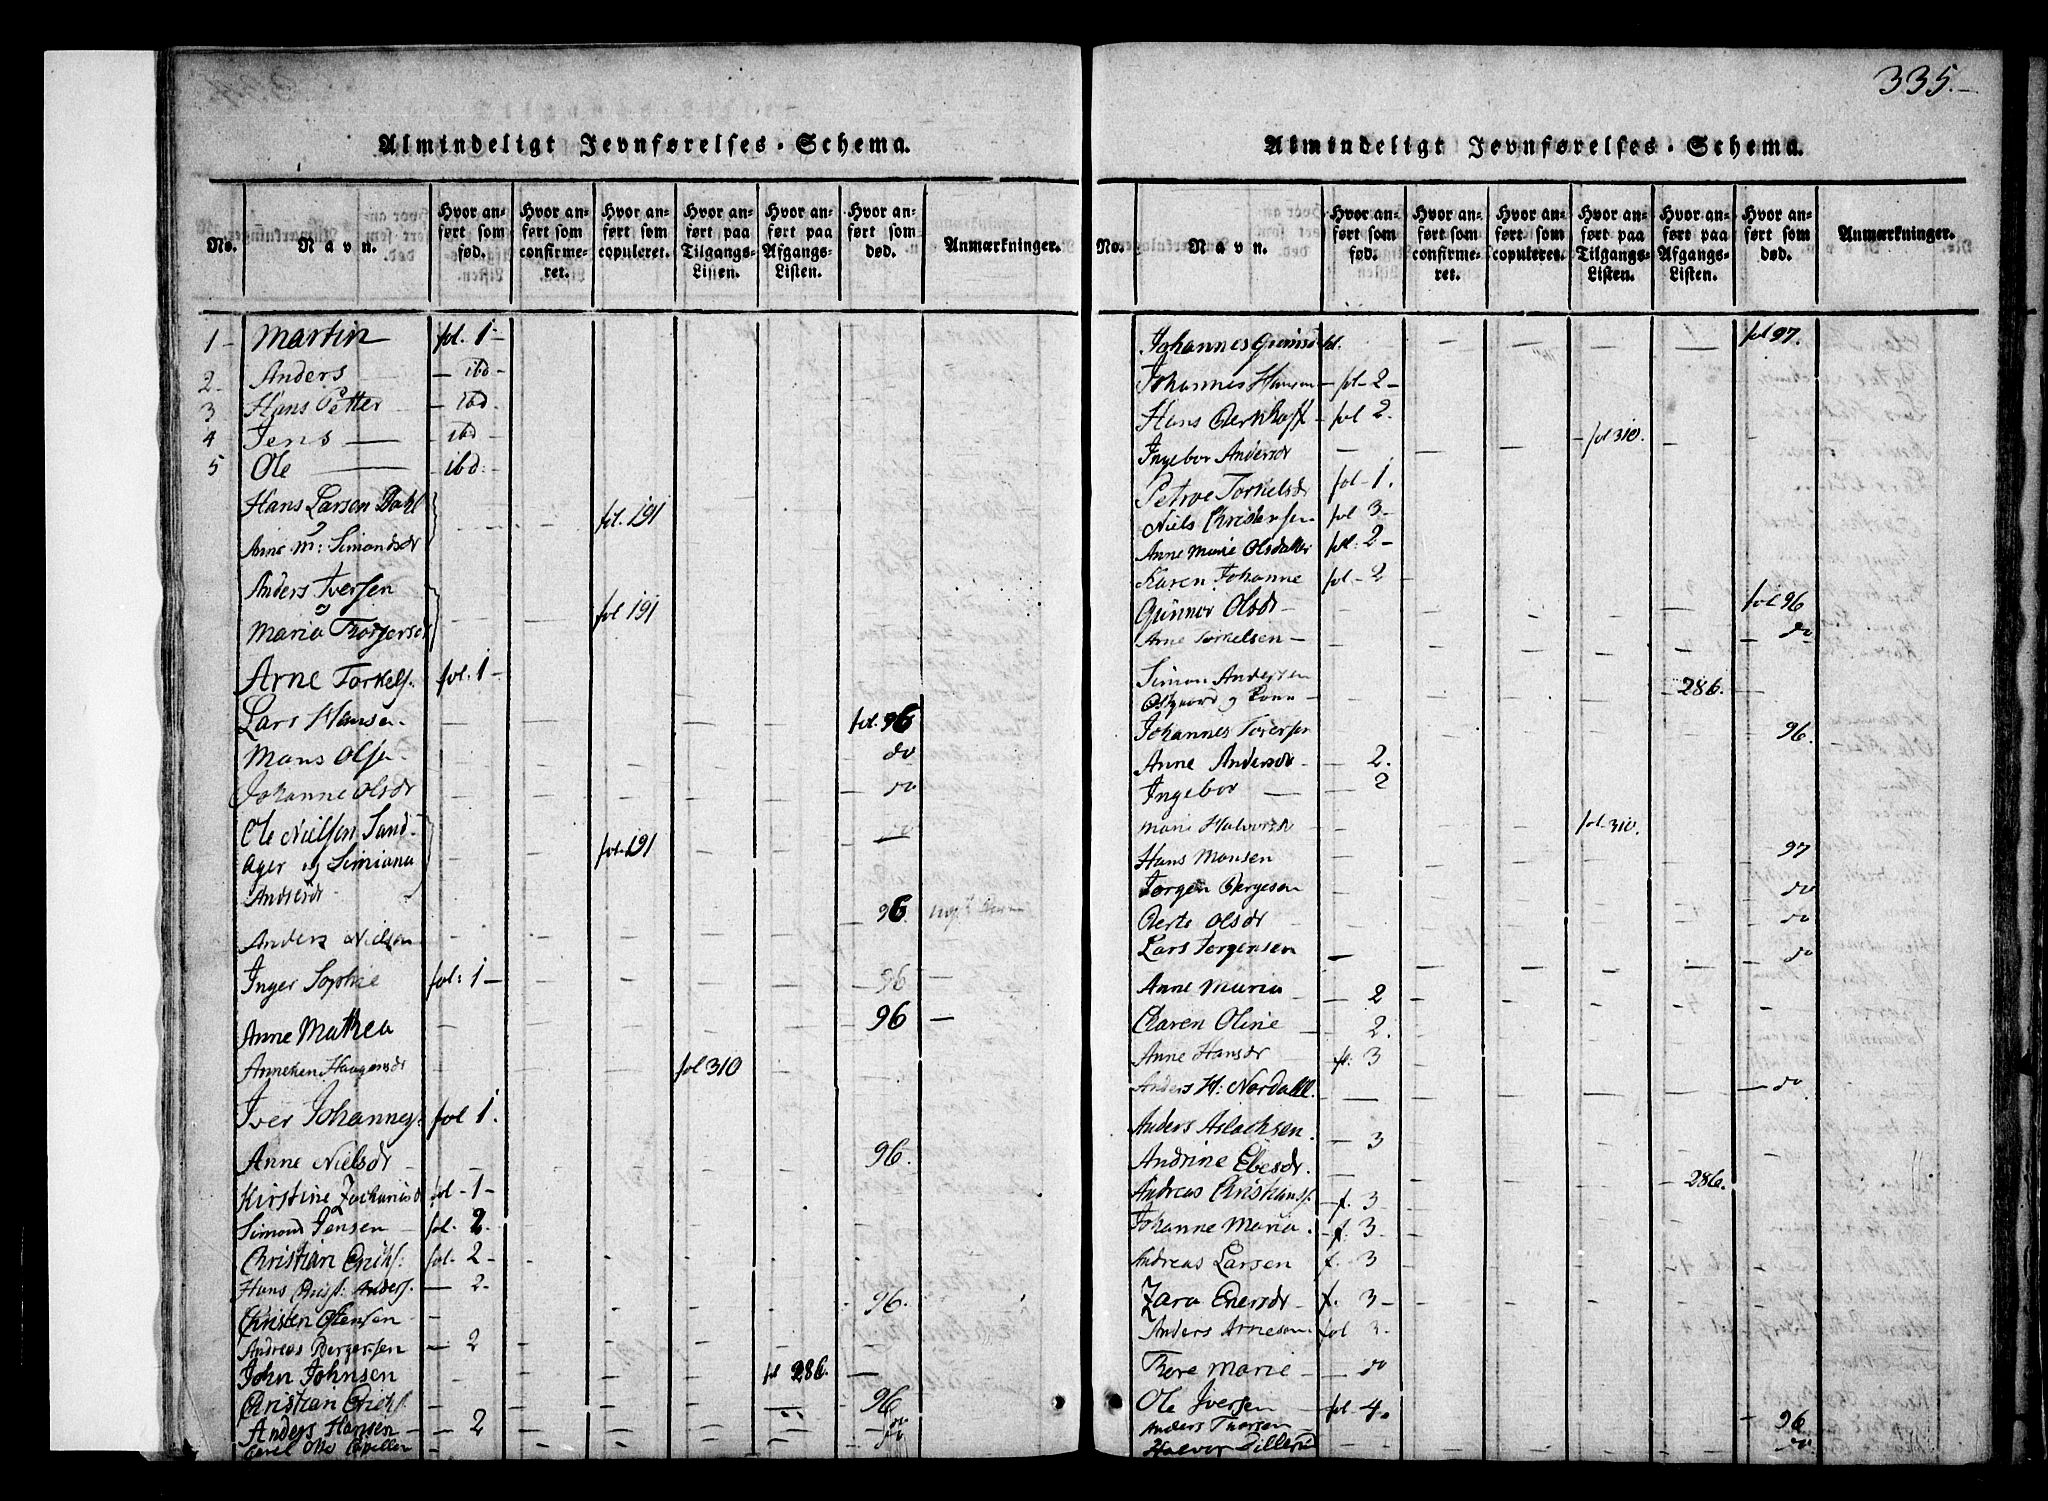 335.
Almindeligt Jevnførelses-Schema.
No.
Navn.
Hvor anført som fød.
Hvor anført som confirmeret.
Hvor anført som copuleret.
Hvor anført paa Tilgangs-Listen.
Hvor anført paa Afgangs-Listen.
Hvor anført som død.
Anmærkninger.
1 Martin fol. 1
2 Anders ibd
3 Hans Petter ibd.
4 Jens ibd
5 Ole ibd.
Hans Larsen Dahl
fol. 191
Anne M: Simondsdr
Anders Iversen
fol 191
Maria Thorgersdr
Arne Torkels. fol. 1
Lars Hansen fol. 96
Mons Olsen do
Johanne Olsdr do
Ole Nielsen Sand- do
ager og Simiana fol. 191
Andersdr
Anders Nielsen 96.
Inger Sophie fol: 1 96
Anne Mathea 96
Anneken Haagensdr fol 310
Iver Johannes. fol 1.
Anne Nielsdr 96.
Kirstine Zachariasd fol 1
Simon Jensen fol. 2
Christian Erichs. fol. 2
Hans Christ: Anders. 2
Christen Stensen 96.
Andreas Bergersen 2
John Johnsen fol 286.
Christian Erichs. 96
Anders Hansen 2 do
Carel Otto Capellen do
Almindeligt Jevnførelses-Schema.
No.
Navn.
Hvor anført som fød.
Hvor anført som confirmeret.
Hvor anført som copuleret.
Hvor anført paa Tilgangs-Listen.
Hvor anført paa Afgangs-Listen.
Hvor anført som død.
Anmærkninger.
Johannes fol. fol 97.
Johannes Hansen fol 2
Hans Berkhoff fol 2.
Ingebor Andersdr fol 310.
Petroe Torkelsdr fol 1.
Niels Christensen fol 3
Anne Marie Olsdatter fol: 2
Karen Johanne fol 2
Gunnor Olsdr fol 96
Arne Torkelsen do
Simon Andersen
Ostgaard og Kone 286.
Johannes Toversen 96.
Anne Andersdr 2.
Ingebor 2
Marie Halvorsdr fol. 310.
Hans Monsen 97
Jørgen Bergeson do
Berte Olsdr do
Lars Jørgensen do
Anne Maria 2
Charen Oline 2.
Anne Hansdr f. 3
Anders H: Nordahl. do
Anders Aslachsen. 3
Andrine Ebesdr. 286.
Andreas Christians. f. 3
Johanne Maria. f. 3
Andreas Larsen f. 3
Zara Enersdr f. 3
Anders Arnesen fol 3.
Thore Marie do
Ole Iversen fol 4.
Anders Thorsen 96
Halvor Dillerud do